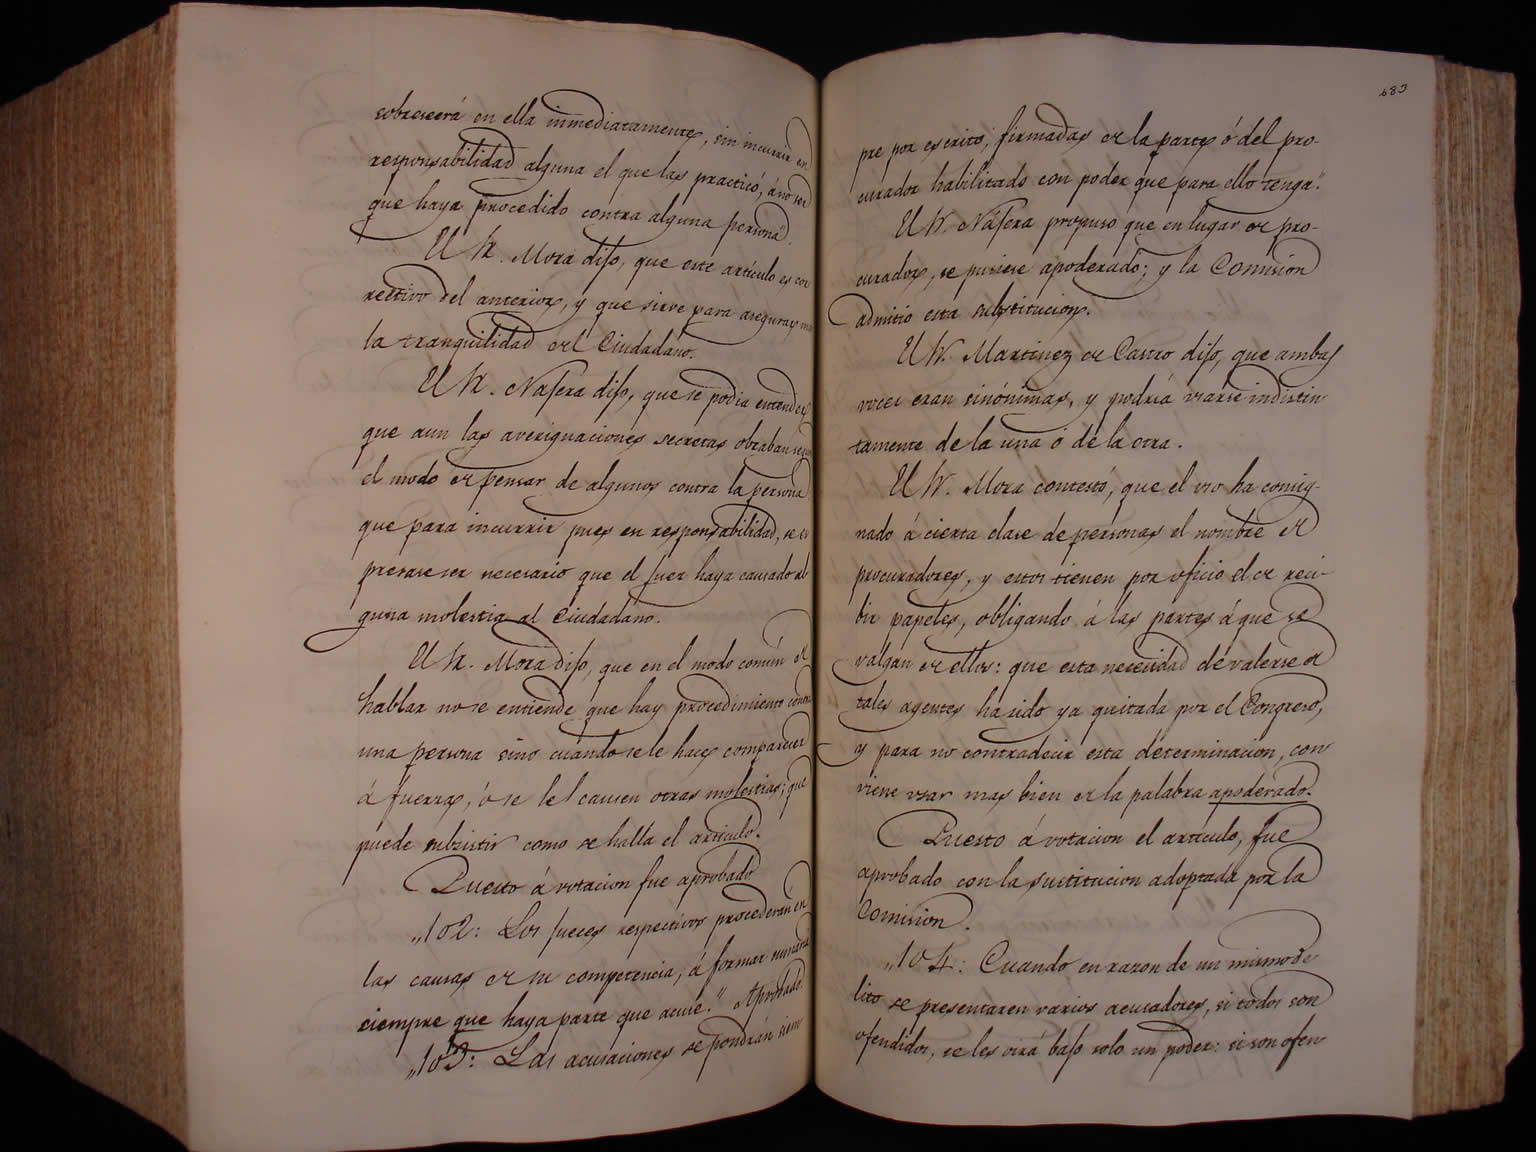 sobreseerá en ella inmediatamente, sin incurrir en
responsabilidad alguna el que las practicó, á no ser
que haya procedido contra alguna persona".
El Sr. Mora dijo, que este artículo es cor
rectivo del anterior, y que sirve para asegurar mas
la tranquilidad del Ciudadano.
El Sr. Najera dijo, que se podia entender
que aun las averiguaciones secretas obraban segun
el modo de pensar de algunos contra la persona
que para incurrir pues en responsabilidad, se es
presase ser necesario que el juez haya causado al
guna molestia al Ciudadano.
El Sr. Mora dijo, que en el modo común de
hablar no se entiende que hay procedimiento contra
una persona sino cuando se le hace comparecer
á fuerza, ó se le causen otras molestias; que
puede subsistir como se halla el artículo.
Puesto á votacion fue aprobado
„102: Los jueces respectivos procederán en
las causas de su competencia, á formar sumaria
siempre que haya parte que acuse." Aprobado
„103: Las acusaciones se pondrán siem
683
pre por escrito, firmadas de la parte ó del pro-
curador habilitado con poder que para ello tenga".
El Sr. Najera propuso que en lugar de pro-
curador, se pusiese apoderado; y la Comision
admitio esta substitucion.
El Sr. Martinez de Castro dijo, que ambas
voces eran sinónimas, y podría usarse indistin
tamente de la una ó de la otra.
El Sr. Mora contestó, que el uso ha consig-
nado á cierta clase de personas el nombre de
procuradores, y estos tienen por oficio el de reci-
bir papeles, obligando á las partes á que se
valgan de ellos: que esta necesidad de valerse de
tales agentes ha sido ya quitada por el Congreso,
y para no contradecir esta determinacion, con
viene usar mas bien de la palabra apoderado.
Puesto á votacion el artículo, fue
aprobado con la sustitucion adoptada por la
Comision.
„104: Cuando en razon de un mismo de
lito se presentaren varios acusadores, si todos son
ofendidos, se les oirá bajo solo un poder: si son ofen